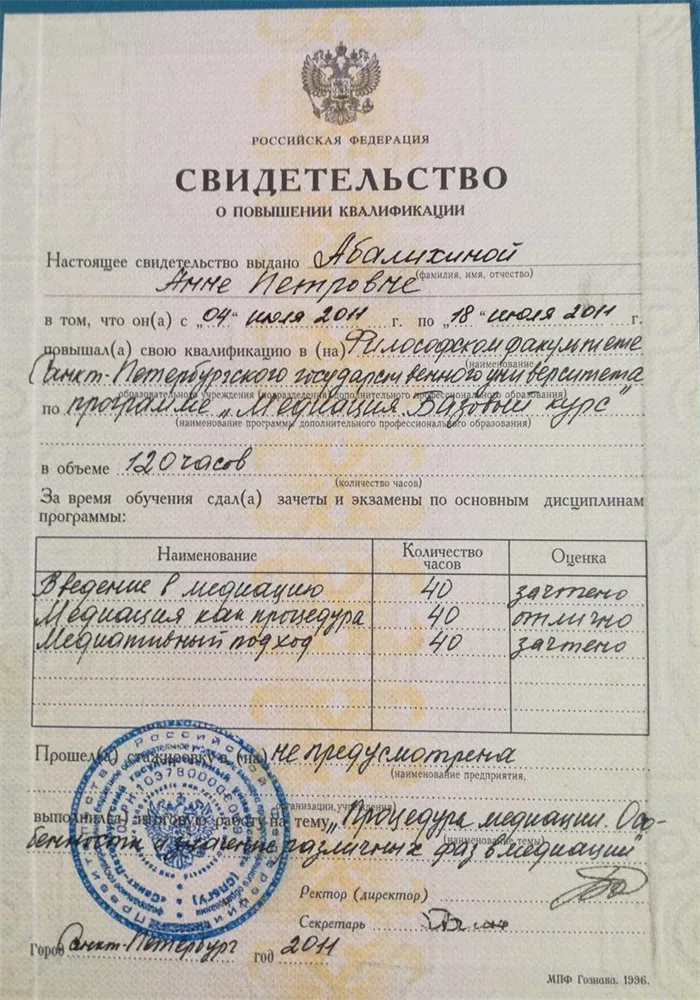 РОССИЙСКАЯ ФЕДЕРАЦИЯ
СВИДЕТЕЛЬСТВО
О ПОВЫШЕНИИ КВАЛИФИКАЦИИ
Настоящее свидетельство выдано Абалихиной
(фамилия, имя, отчество)
Анне Петровне
в том, что он(а) с „04“ июля 2011 г. по „18“ июля 2011 г.
повышал(а) свою квалификацию в (на) Философском факультете
(наименование
Санкт-Петербургского государственного университета
образовательного учреждения (подразделения) дополнительного профессионального образования)
по программе „Медиация. Базовый курс"
(наименование программы дополнительного профессионального образования)
в объеме 120 часов
(количество часов)
За время обучения сдал(а) зачеты и экзамены по основным дисциплинам
программы:
Наименование Количество часов Оценка
Введение в медиацию 40 зачтено
Медиация как процедура 40 отлично
Медиативный подход 40 зачтено
Прошел(а) стажировку в (на) не предусмотрена
(наименование предприятия,
организации, учреждения)
выполнил(а) итоговую работу на тему „Процедура медиации. Осо-
(наименование темы)
бенности и значение различных фаз в медиации"
Ректор (директор)
Секретарь
Город Санкт-Петербург год 2011
МПФ Гознака. 1996.